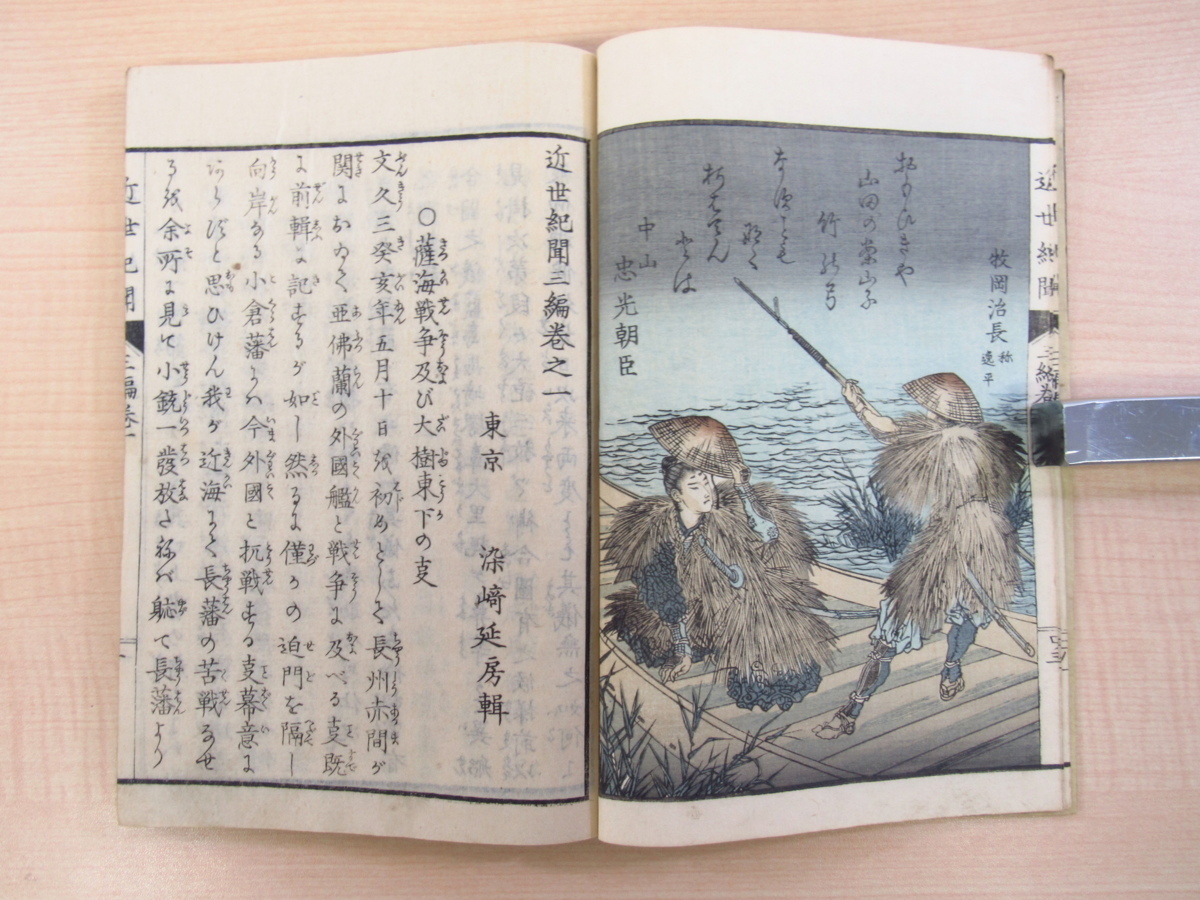 牧岡治長
称
逸平
おもひきや
山田の
竹
中山
忠光朝臣
近世紀聞
近世紀聞三編巻之一
東京 染﨑延房輯
○薩海戦争及び大樹東下の支
文久三癸亥年五月十日を初めとして長州赤間が
関において亜佛蘭の外國艦と戦争に及べる支既
に前輯に記するが如し然るに僅かの迫門を隔し
向岸なる小倉藩にハ今外國と抗戦する支幕意に
あらずと思ひけん我が近海にて長藩の苦戦なせ
るを余所に見て小銃一發放たねバ軈て長藩より
近世紀聞
三編巻一